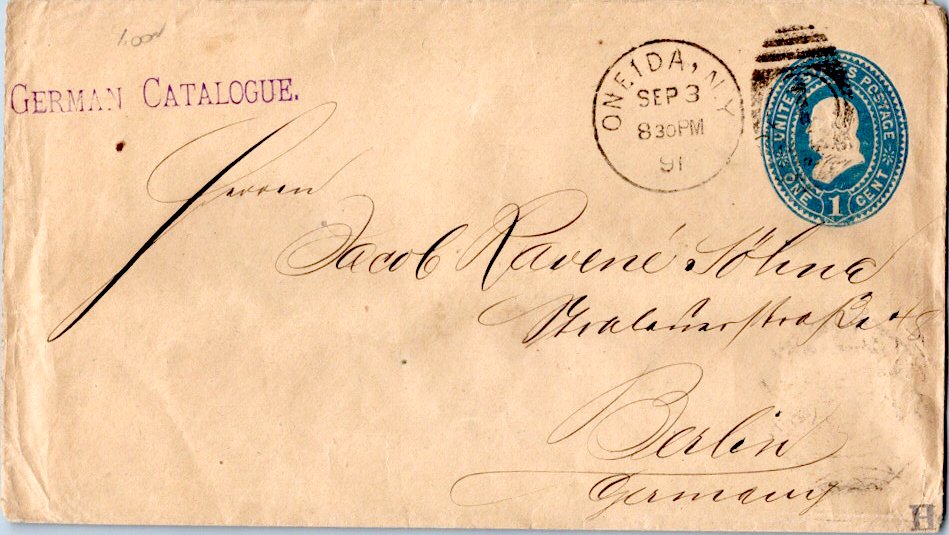 GERMAN CATALOGUE.
ONEIDA, N.Y.
SEP 3
8 30 PM
91
UNITED STATES POSTAGE
ONE 1 CENT
Herren
Jacob Ravené Söhne
Stralauerstraße
Berlin
Germany
H